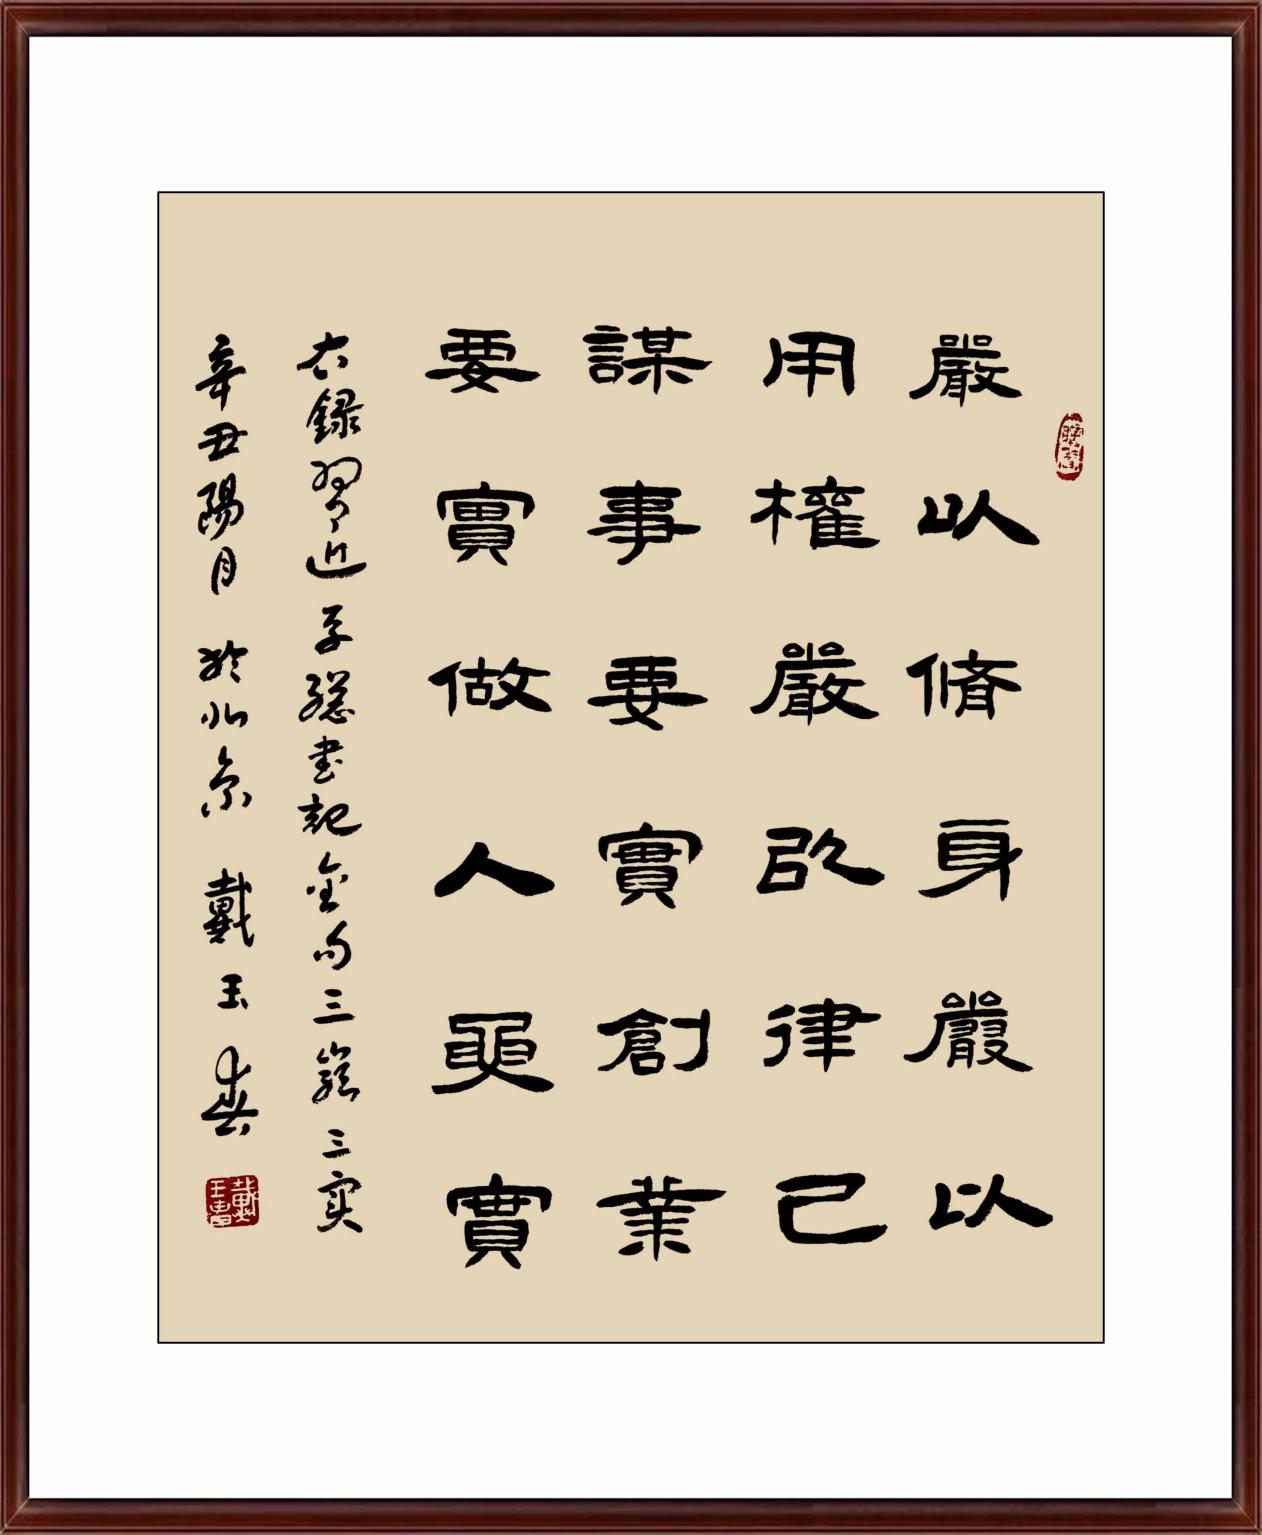 嚴以脩身嚴以
用權嚴以律己
謀事要實創業
要實做人要實
右錄習近平總書記金句三嚴三实
辛丑陽月於北京 戴玉春